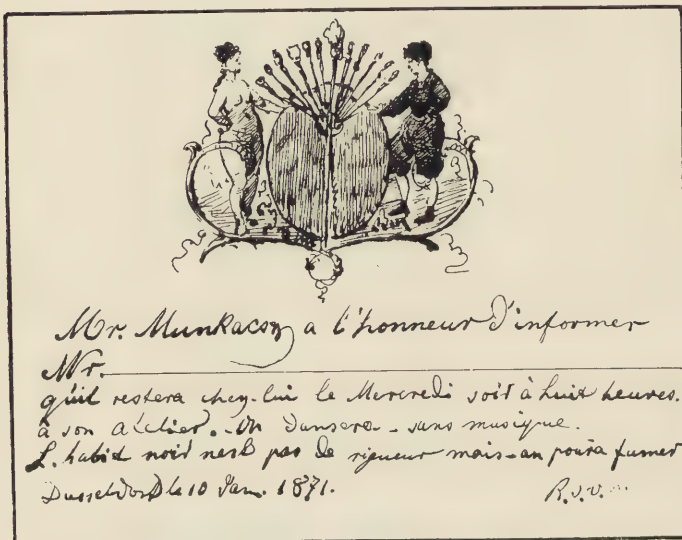 Mr. Munkacsy a l'honneur d'informer
Mr.
qu'il restera chez-lui le Mercredi soir à huit heures.
à son atelier. On dansera - sans musique.
L'habit noir nest pas de rigueur mais - on poura fumer
Dusseldorf le 10 Jan. 1871. R.S.V.